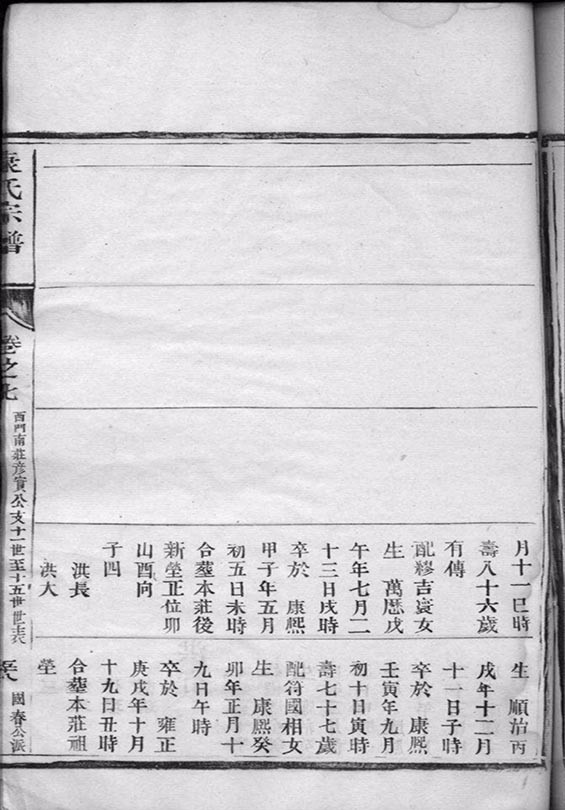 月十一巳時
壽八十六歲
有傳
配繆吉裳女
生　萬厯戊
午年七月二
十三日戌時
卒於　康熙
甲子年五月
初五日未時
合塟本莊後
新塋正位卯
山酉向
子四
洪長
洪大
生　順治丙
戌年十二月
十一日子時
卒於　康熙
壬寅年九月
初十日寅時
壽七十七歲
配符國相女
生　康熙癸
卯年正月十
九日午時
卒於　雍正
庚戌年十月
十九日丑時
合塟本莊祖
塋
氏宗譜
卷之七
西門南莊彥實公支十一世至十五世世表
國春公派